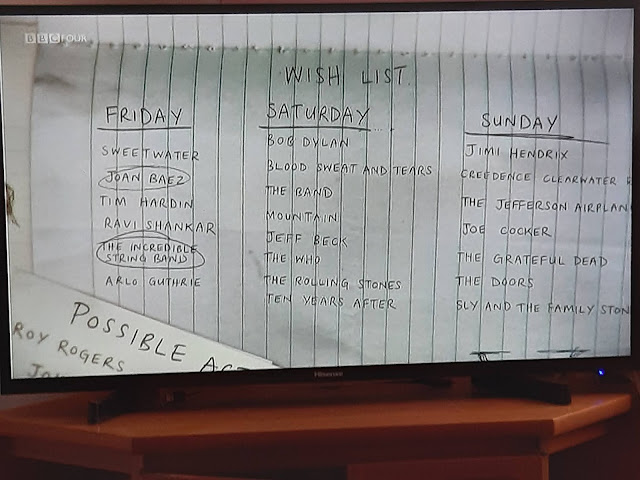 BBC FOUR
WISH LIST.
FRIDAY
SWEETWATER
JOAN BAEZ
TIM HARDIN
RAVI SHANKAR
THE INCREDIBLE
STRING BAND
ARLO GUTHRIE
SATURDAY
BOB DYLAN
BLOOD SWEAT AND TEARS
THE BAND
MOUNTAIN
JEFF BECK
THE WHO
THE ROLLING STONES
TEN YEARS AFTER
SUNDAY
JIMI HENDRIX
CREEDENCE CLEARWATER
THE JEFFERSON AIRPLAN
JOE COCKER
THE GRATEFUL DEAD
THE DOORS
SLY AND THE FAMILY STON
POSSIBLE
ROY ROGERS
Hisense